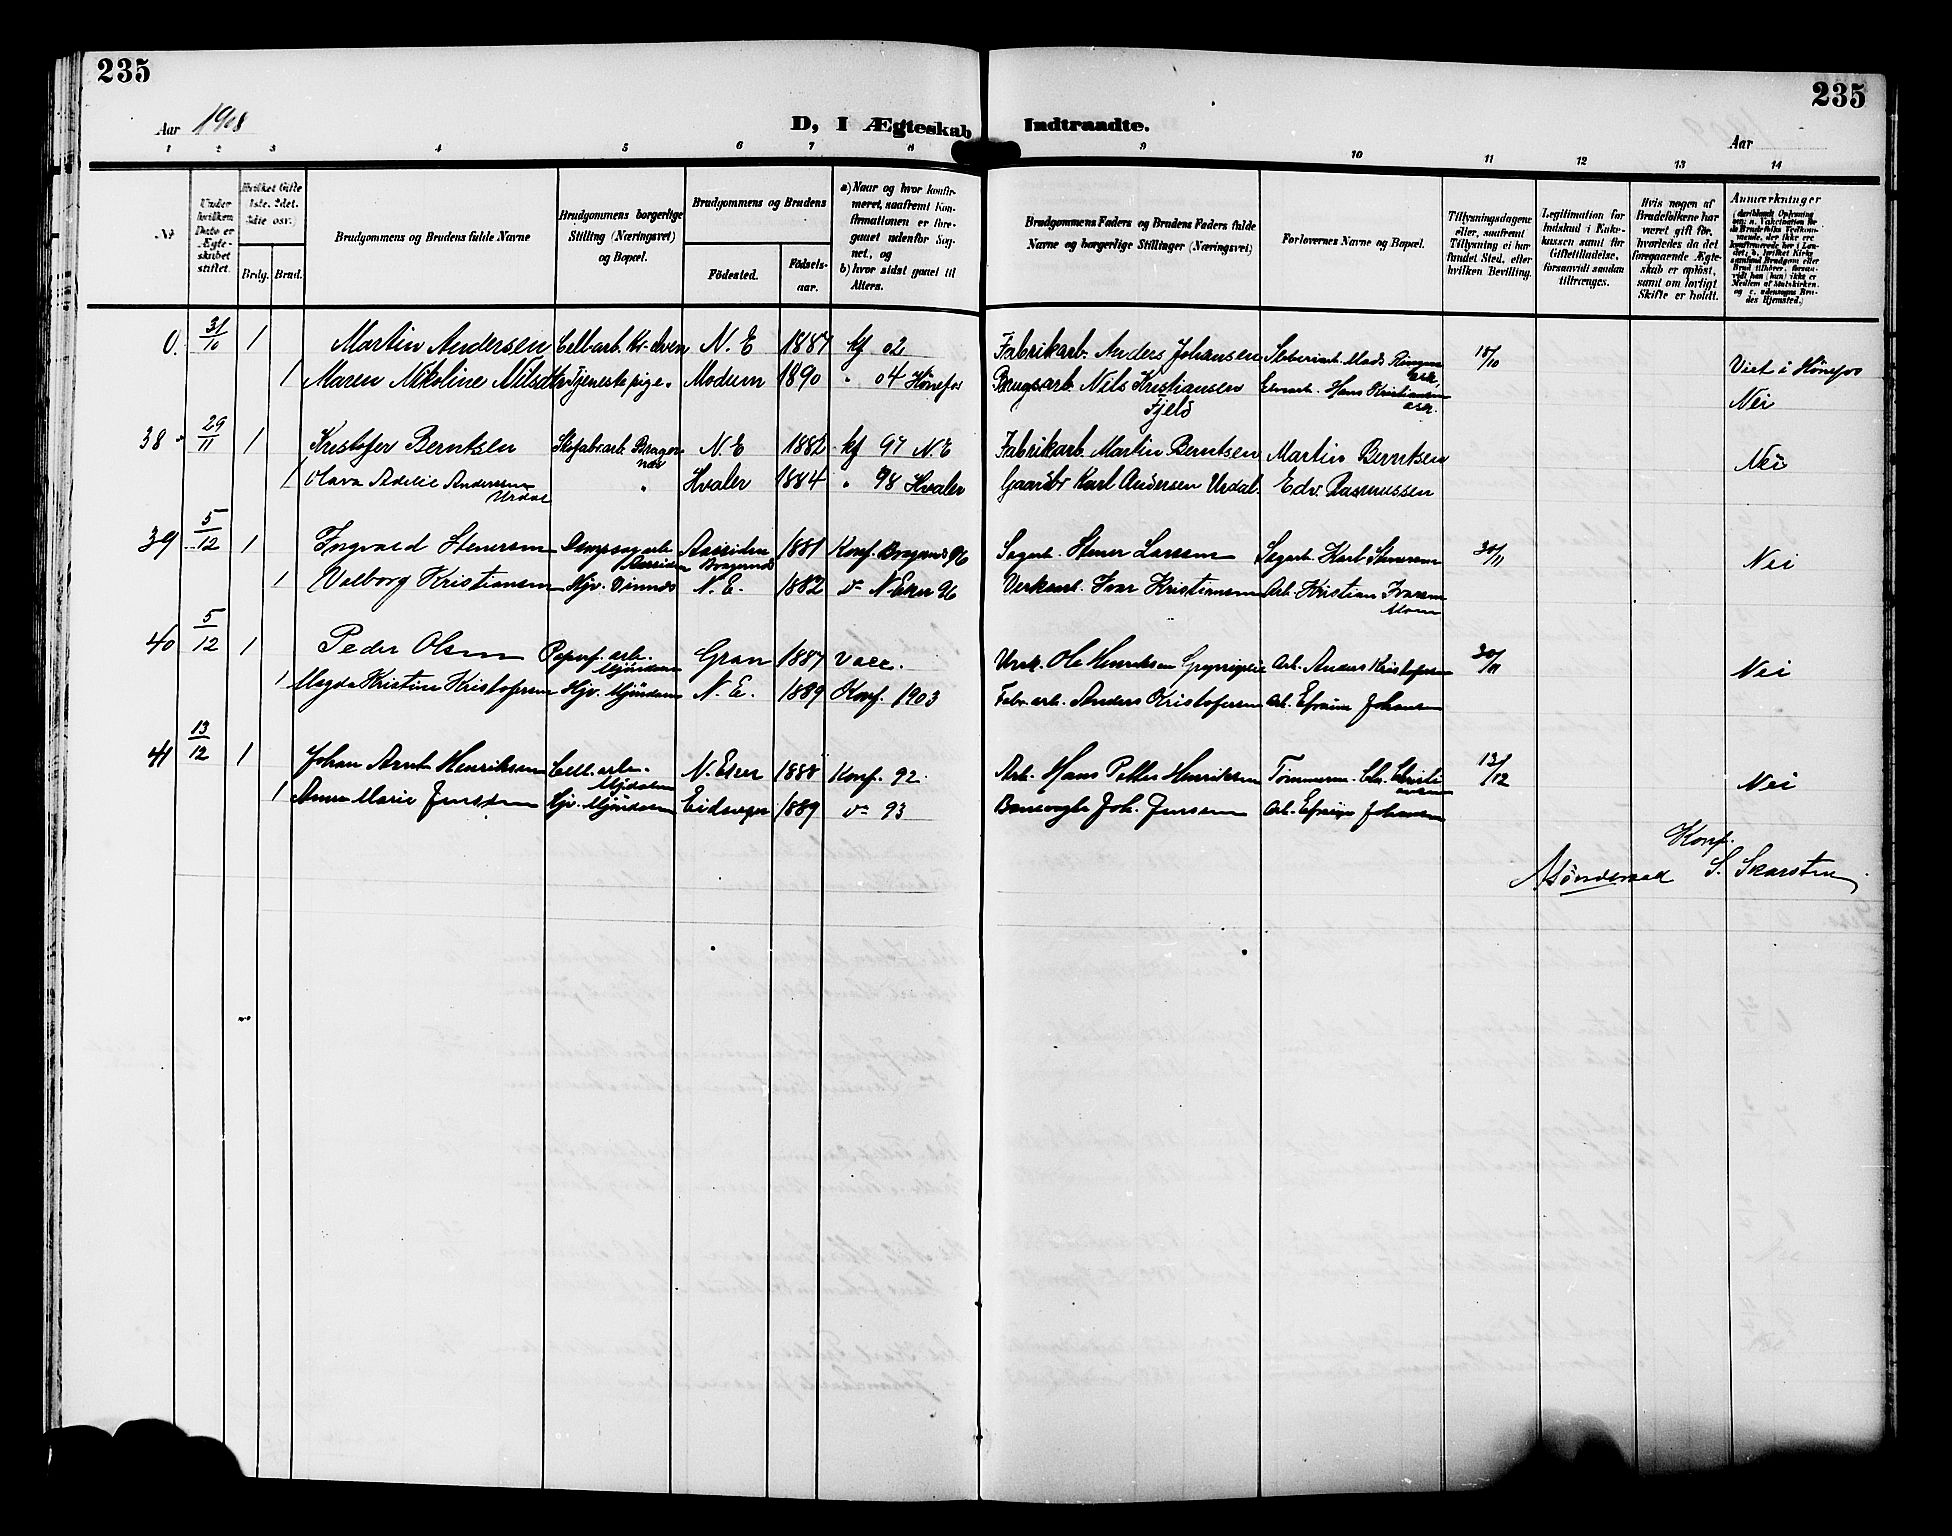 235
235
Aar 1908
D, I Ægteskab Indtraadte.
Aar
1 2 3 4 5 6 7 8 9 10 11 12 13 14
Nr
Under hvilken Dato er Ægteskabet stiftet.
Hvilket Gifte 1ste, 2det, 3die osv.
Brdg. Brud.
Brudgommens og Brudens fulde Navne
Brudgommens borgerlige Stilling (Næringsvei) og Bopæl.
Brudgommens og Brudens
Födested.
Födsels-aar.
a) Naar og hvor konfirmeret, saafremt Konfirmationen er foregaaet udenfor Sognet, og
b) hvor sidst gaaet til Alters.
Brudgommens Faders og Brudens Faders fulde Navne og borgerlige Stillinger (Næringsvei)
Forlovernes Navne og Bopæl.
Tillysningsdagene eller, saafremt Tillysning ei har fundet Sted, efter hvilken Bevilling.
Legitimation for Indskud i Enkekassen samt for Giftetilladelse, forsaavidt saadan tiltrænges.
Hvis nogen af Brudefolkene har været gift før, hvorledes da det foregaaende Ægteskab er opløst, samt om lovligt Skifte er holdt.
Anmærkninger
0. 31/10 1 Martin Andersen N. E 1887 kf 02 Fabrikarb. Anders Johansen 18/10 Viet i Hönefos
1 Maren Nikoline Nilsdtr Tjenestepige. Modum 1890 " 04 Hönefos Brugsarb. Nils Kristiansen Fjeld Hans Kristiansen Nei
38 29/11 1 Kristofer Berntsen Skofabr.arb. Bragernæs N. E 1882 kf 97 N. E Fabrikarb. Martin Berntsen Martin Berntsen Nei
1 Olava Adelie Andersen Urdal " Hvaler 1884 " 98 Hvaler Gaardbr Karl Andersen Urdal Edv. Rasmussen
39 5/12 1 Ingvald Stenersen Aassiden Aassiden Bragernæs 1881 Konf. Bragernæs 96 Sagarb. Stener Larsen Sagarb. Karl Stenersen 30/11 Nei
1 Valborg Kristiansen Hjv. N. E. 1882 do N. Eker 96 Verksarb. Ivar Kristiansen Arb. Kristian Ivarsen
40 5/12 1 Peder Olsen Papirf. arb. Mjöndalen Gran 1887 vacc. Ole Henriksen Arb. Anders Kristofersen 30/11 Nei
1 Magda Kristine Kristofersen Hjv. Mjöndalen N. E. 1889 Konf. 1903 Fabr. arb. Anders Kristofersen Arb. Efraim Johansen
41 13/12 1 Johan Arnt Henriksen Cell. arb. Mjdalen N. Eker 1888 Konf. 92. Arb. Hans Petter Henriksen Tömmerm. 13/12 Nei
1 Anna Marie Jensen Hjv. Mjöndalen Eidanger 1889 do 93 Banevogter Joh. Jensen Arb. Efraim Johansen
Konf.
S. Skarsten